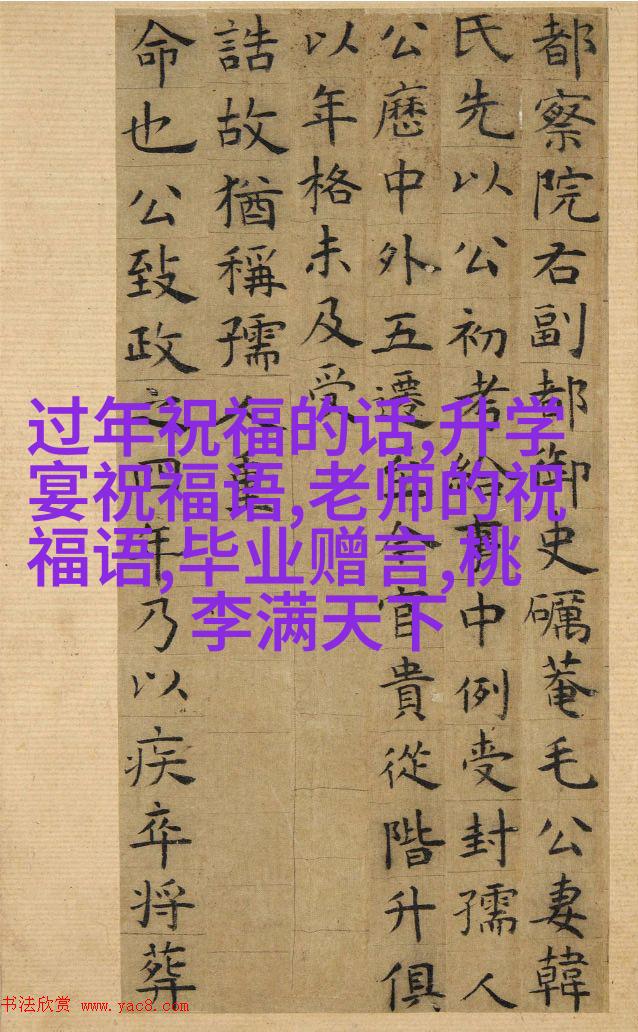 都察院右副都御史礪菴毛公妻韓
氏先以公初考給事中例受封孺人
公歷中外五遷至今官貴從階升俱
以年格未及受
誥故猶稱孺人重
命也公致政之四年乃以疾卒將葬
过年祝福的话,升学
宴祝福语,老师的祝
福语,毕业赠言,桃
李满天下
书法欣赏 www.yac8.com